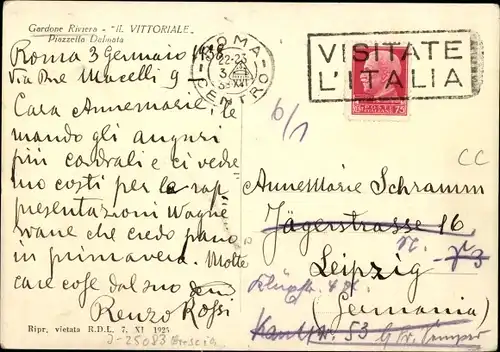 Gardone Riviera - "IL VITTORIALE"
Piazzetta Dalmata
Roma 3 Gennaio 1938
Via Due Macelli 9
Cara Annemarie, Te
mando gli auguri
più cordiali e ci vedre
mo costì per le rap
presentazioni Wagne
riane che credo siano
in primavera. Molte
care cose dal suo
Renzo Rossi
Ripr. vietata R.D.L. 7, XI 1925
J-25083 Brescia
ROMA
CENTRO
22-23
VISITATE
L'ITALIA
75
6/1
CC
AnneMarie Schramm
Jägerstrasse 16
Leipzig
(Germania)
Kantstr. 53